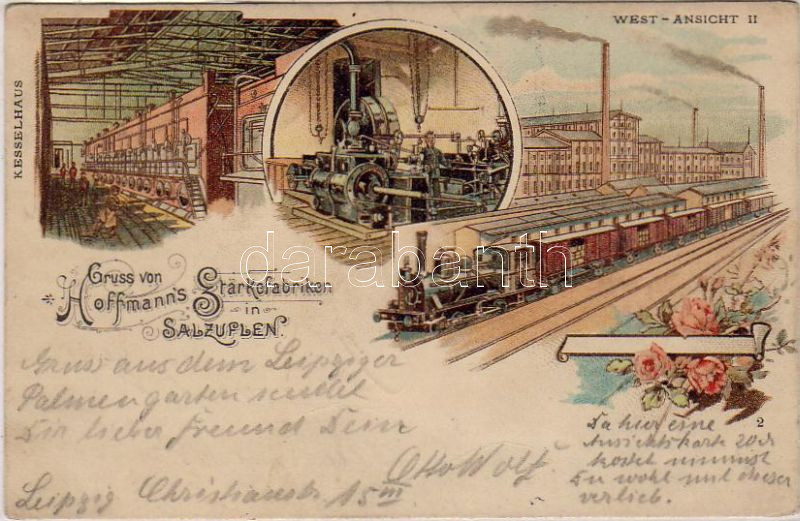 WEST - ANSICHT II
KESSELHAUS
darabanth
Gruss von
Hoffmann's Stärkefabriken
in
SALZUFLEN.
Gruss aus dem Leipziger
Palmengarten sendet
Dir lieber Freund Dein
Otto Wolf
Leipzig Christianstr 15 III
2
Da hier eine
Ansichtskarte 20 d
kostet nimmst
Du wohl mit dieser
verlieb.